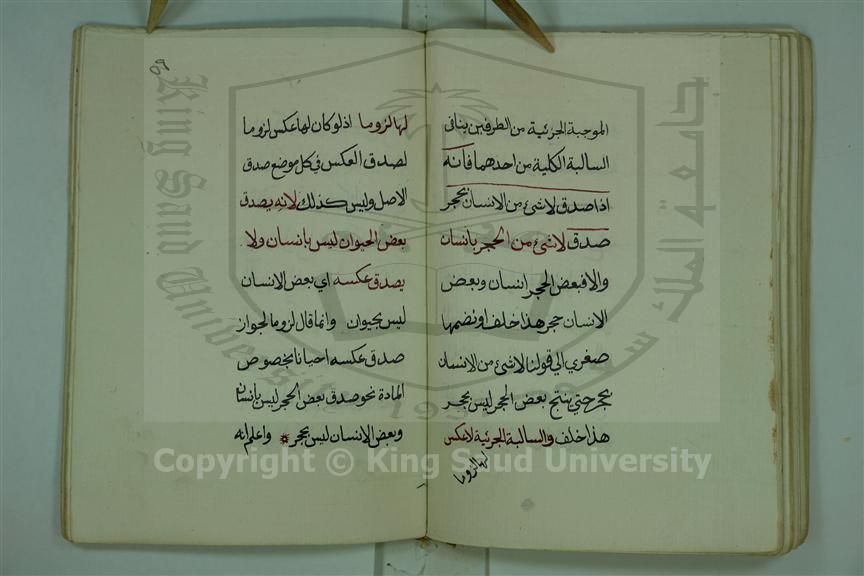 الموجبة الجزئية من الطرفين ينافى
السالبة الكلية من احدهما فانه
اذا صدق لاشئ من الانسان بحجر
صدق لاشئ من الحجر بانسان
والا فبعض الحجر انسان وبعض
الانسان حجر هذا خلف او نضمها
صغري الي قولنا لاشئ من الانسان
بحجر حتي ينتج بعض الحجر ليس بحجر
هذا خلف والسالبة الجزئية لا عكس
لها لزوما
٥٩
لها لزوما اذ لو كان لها عكس لزوما
لصدق العكس في كل موضع صدق
الاصل وليس كذلك لانه يصدق
بعض الحيوان ليس بانسان ولا
يصدق عكسه اي بعض الانسان
ليس بحيوان وانما قال لزوما لجواز
صدق عكسه احيانا بخصوص
المادة نحو صدق بعض الحجر ليس بانسان
وبعض الانسان ليس بحجر * واعلم انه
جامعة الملك سعود
King Saud University
1957
Copyright © King Saud University